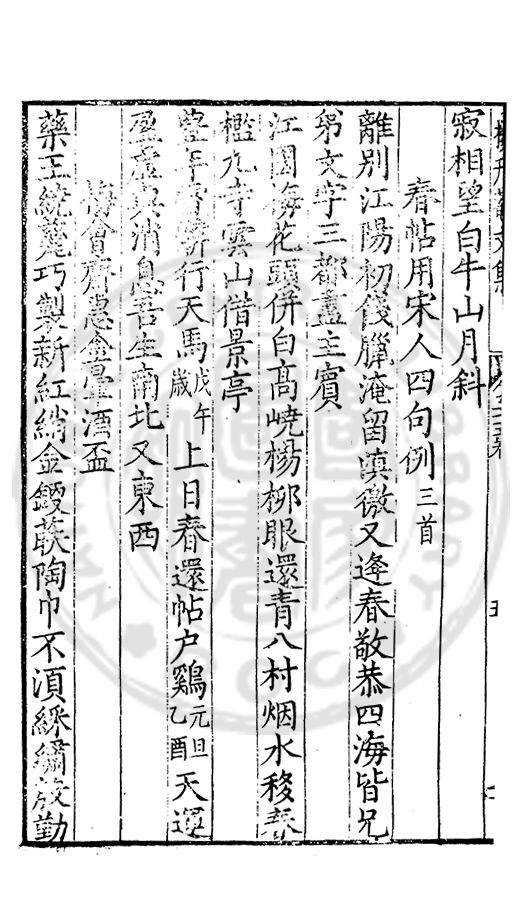 寂相望白牛山月斜
春帖用宋人四句例三首
離別江陽初餞臘淹留滇徼又逢春敬恭四海皆兄
弟文字三都盡主賓
江園梅花頭併白高嶢楊柳眼還青八村烟水移春
檻九寺雲山借景亭
豐年行天馬戊午歲上日春還帖户鷄元旦乙酉天運
盈虛與消息吾生南北又東西
會齋惠金臺酒盃
藥玉巧製新紅綃金鍐陶巾不須繡放勤